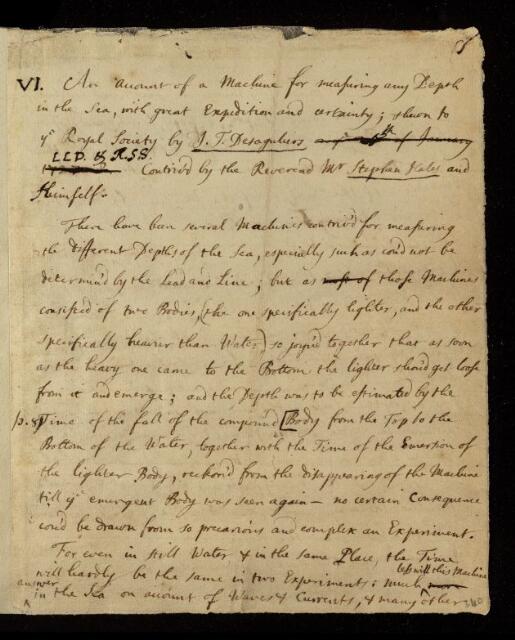 VI. An account of a Machine for measuring any Depth
in the Sea, with great Expedition and certainty; shewn to
ye Royal Society by J. T. Desaguliers of January
LLD. & RSS. Contriv'd by the Reverend Mr Stephen Hales and
Himself.
There have been several Machines contriv'd for measuring
the different Depths of the Sea, especially such as cou'd not be
determin'd by the Lead and Line; but as most of those Machines
consisted of two Bodies, (the one specifically lighter, and the other
specifically heavier than Water) so joyn'd together that as soon
as the heavy one came to the Bottom the lighter shou'd get loose
from it and emerge; and the Depth was to be estimated by the
Time of the fall of the compound [Body from the Top to the
Bottom of the Water, together with the Time of the Emersion of
the lighter Body, reckon'd from the disappearing of the Machine
till ye emergent Body was seen again — no certain Consequence
cou'd be drawn from so precarious and complex an Experiment.
For even in still Water & in the same Place, the Time
will hardly be the same in two Experiments: much less will this Machine
answer in the Sea on account of Waves & Currents, & many other